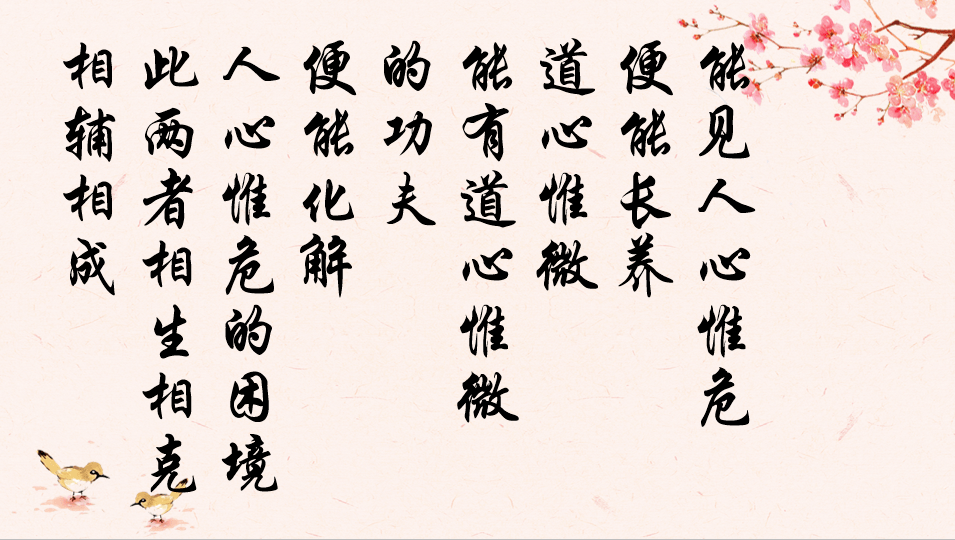 能见人心惟危
便能长养
道心惟微
能有道心惟微
的功夫
便能化解
人心惟危的困境
此两者相生相克
相辅相成